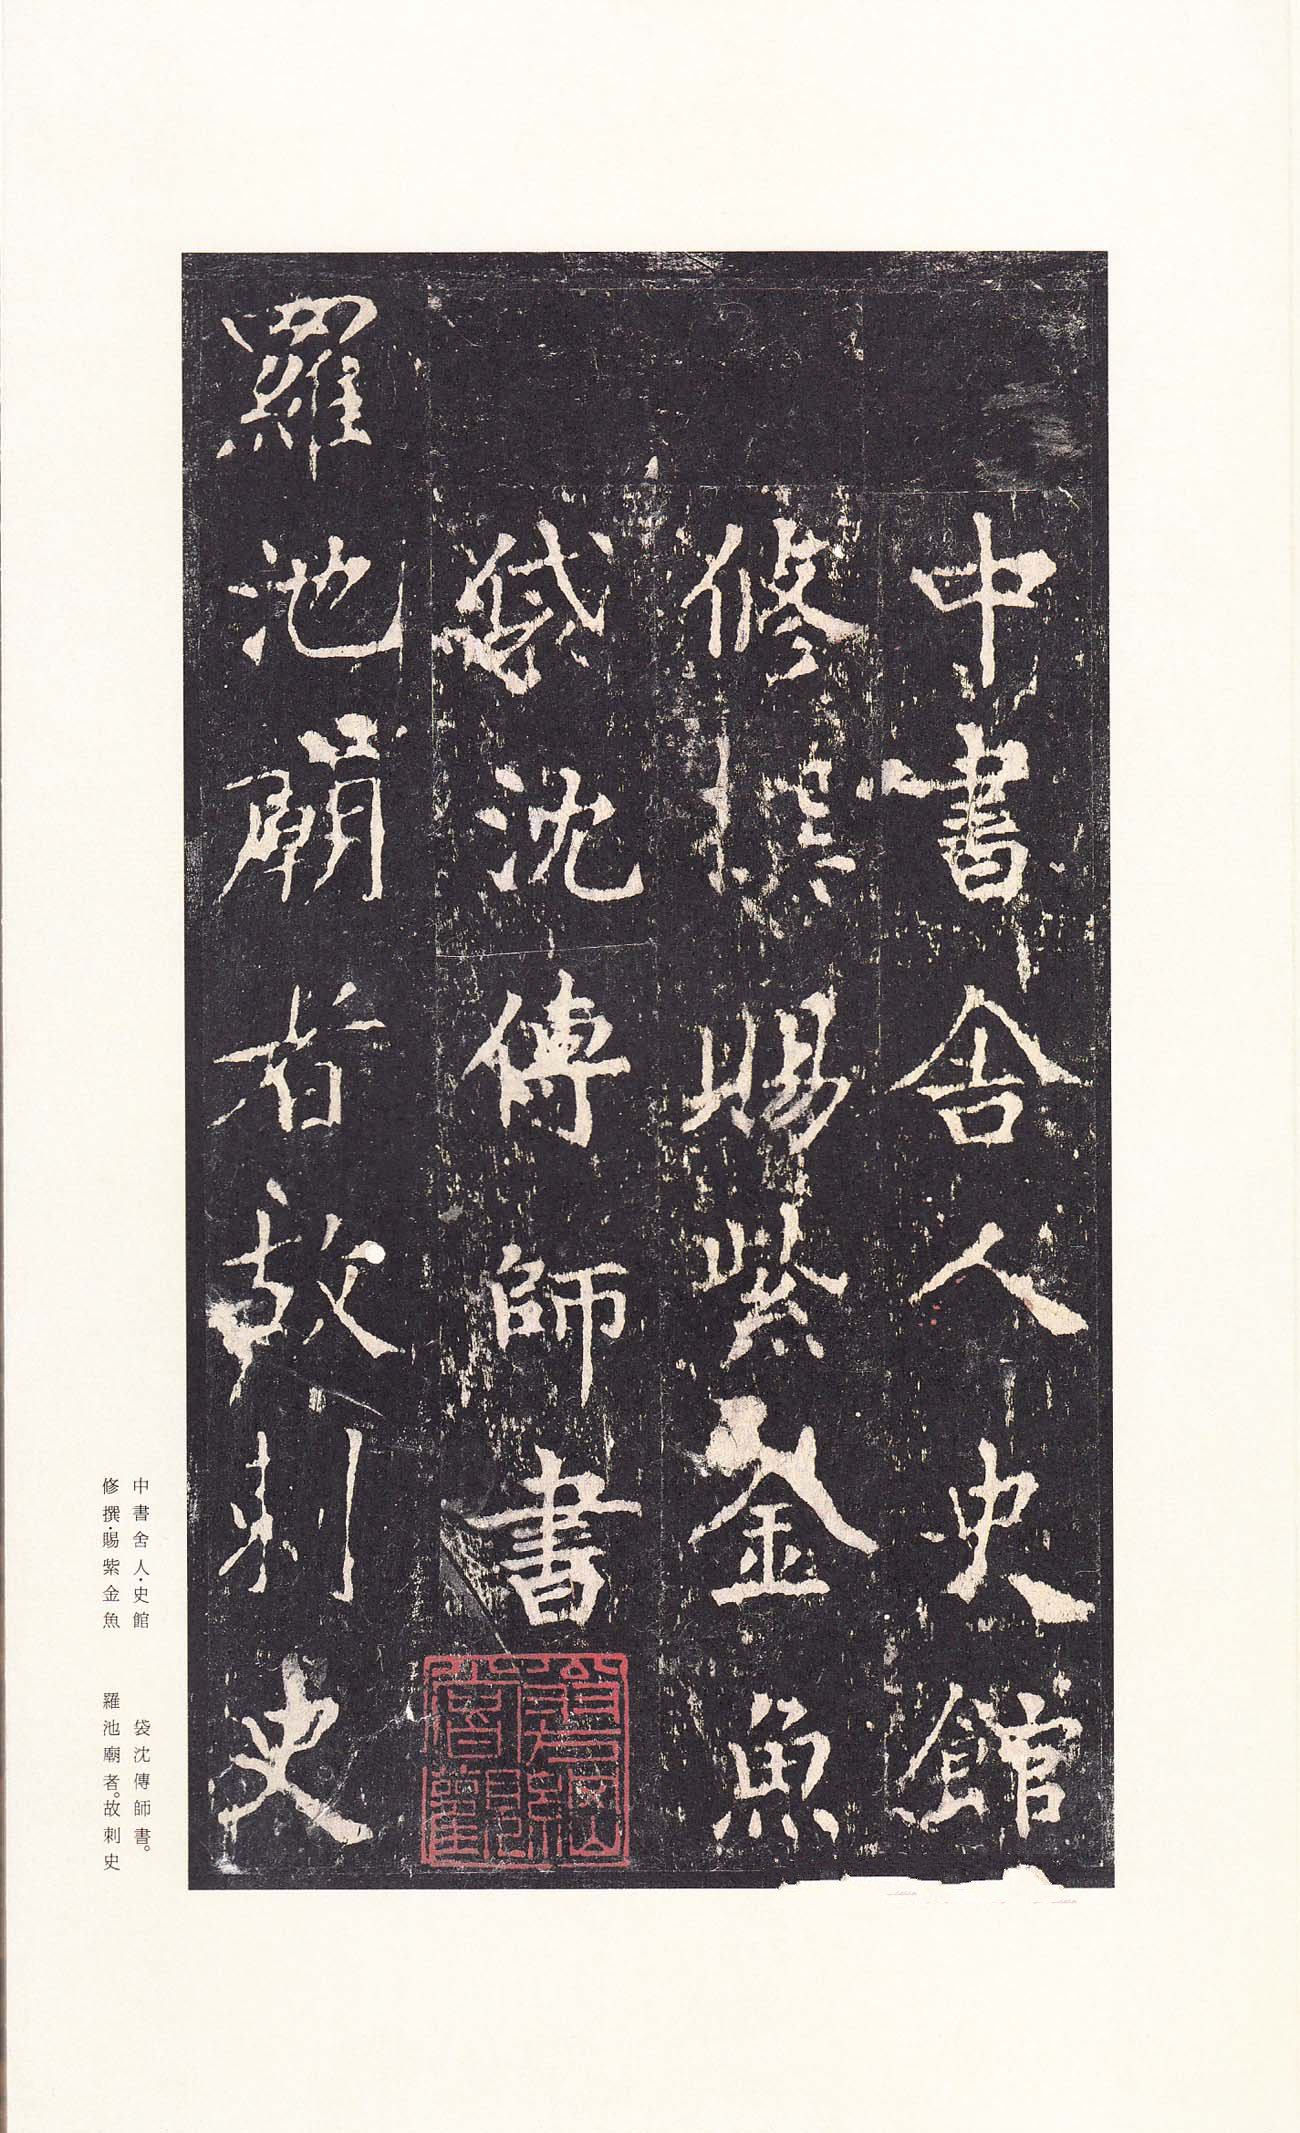 中書舍人史館
修撰賜紫金魚
袋沈傳師書
羅池廟者故刺史
中書舍人·史館
修撰·賜紫金魚
袋沈傳師書。
羅池廟者。故刺史